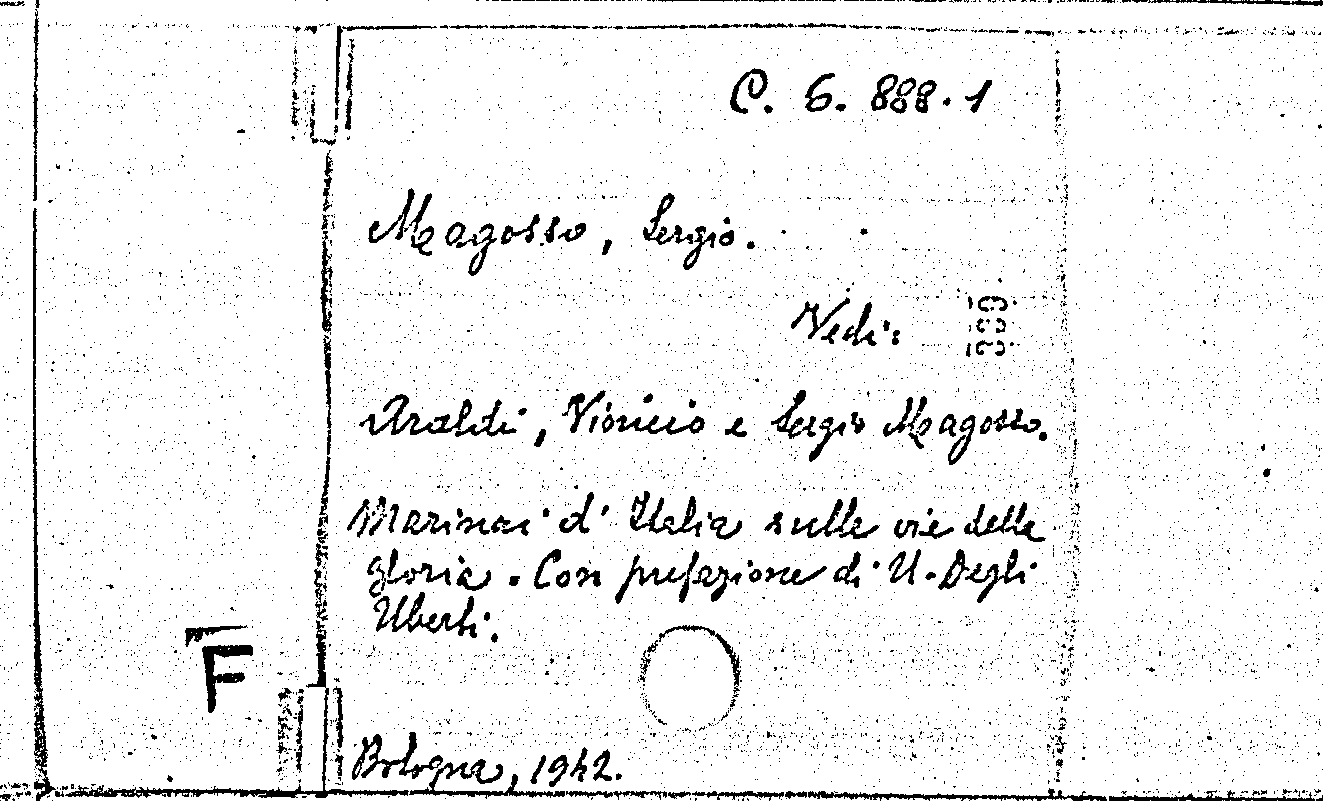 C. 6. 888.1
Magosso, Sergio.
Vedi:
339
Araldi, Vinicio e Sergio Magosso.
Marinai d'Italia sulle vie della
gloria. Con prefazione di U. Degli
Uberti.
F
Bologna, 1942.